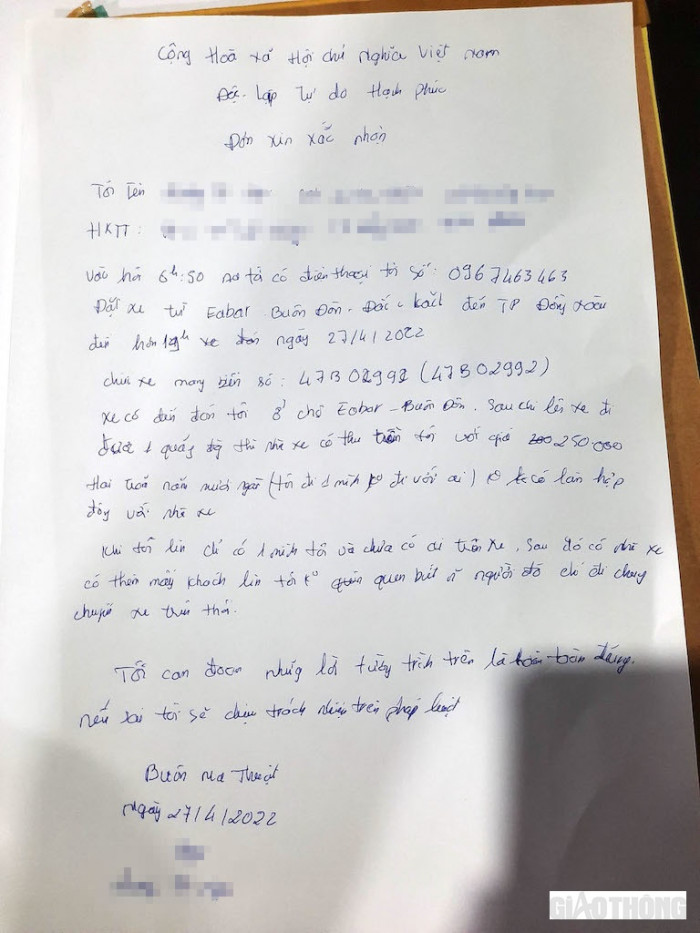 Cộng Hoà xã Hội chủ nghĩa Việt nam
Độc lập Tự do Hạnh phúc
Đơn xin xác nhận
Tôi tên
HKTT:
Vào hồi 6h:50 có điện thoại tới số: 0967463463
Đặt xe từ Eabar Buôn Đôn - Đắc Lắk đến TP Đồng xoài
đến hơn xe đón ngày 27/4/2022
chiếc xe mang biển số: 47B02992 (47B02992)
xe có đến đón tôi ở chợ Eabar - Buôn Đôn. Sau khi lên xe đi
được 1 quảng thì nhà xe có thu tiền tôi với giá 250.000
Hai trăm năm mươi ngàn (tôi đi 1 mình ko đi với ai) ko có làm hợp
đồng với nhà xe
Khi tôi lên chỉ có 1 mình tôi và chưa có ai trên xe. Sau đó có nhà xe
có thêm mấy khách lên tôi ko quen biết người đó chỉ đi chung
chuyến xe thôi.
Tôi cam đoan những lời tường trình trên là hoàn toàn đúng.
nếu sai tôi sẽ chịu trách nhiệm trên pháp luật
Buôn Ma Thuột
ngày 27/4/2022
GIAOTHÔNG